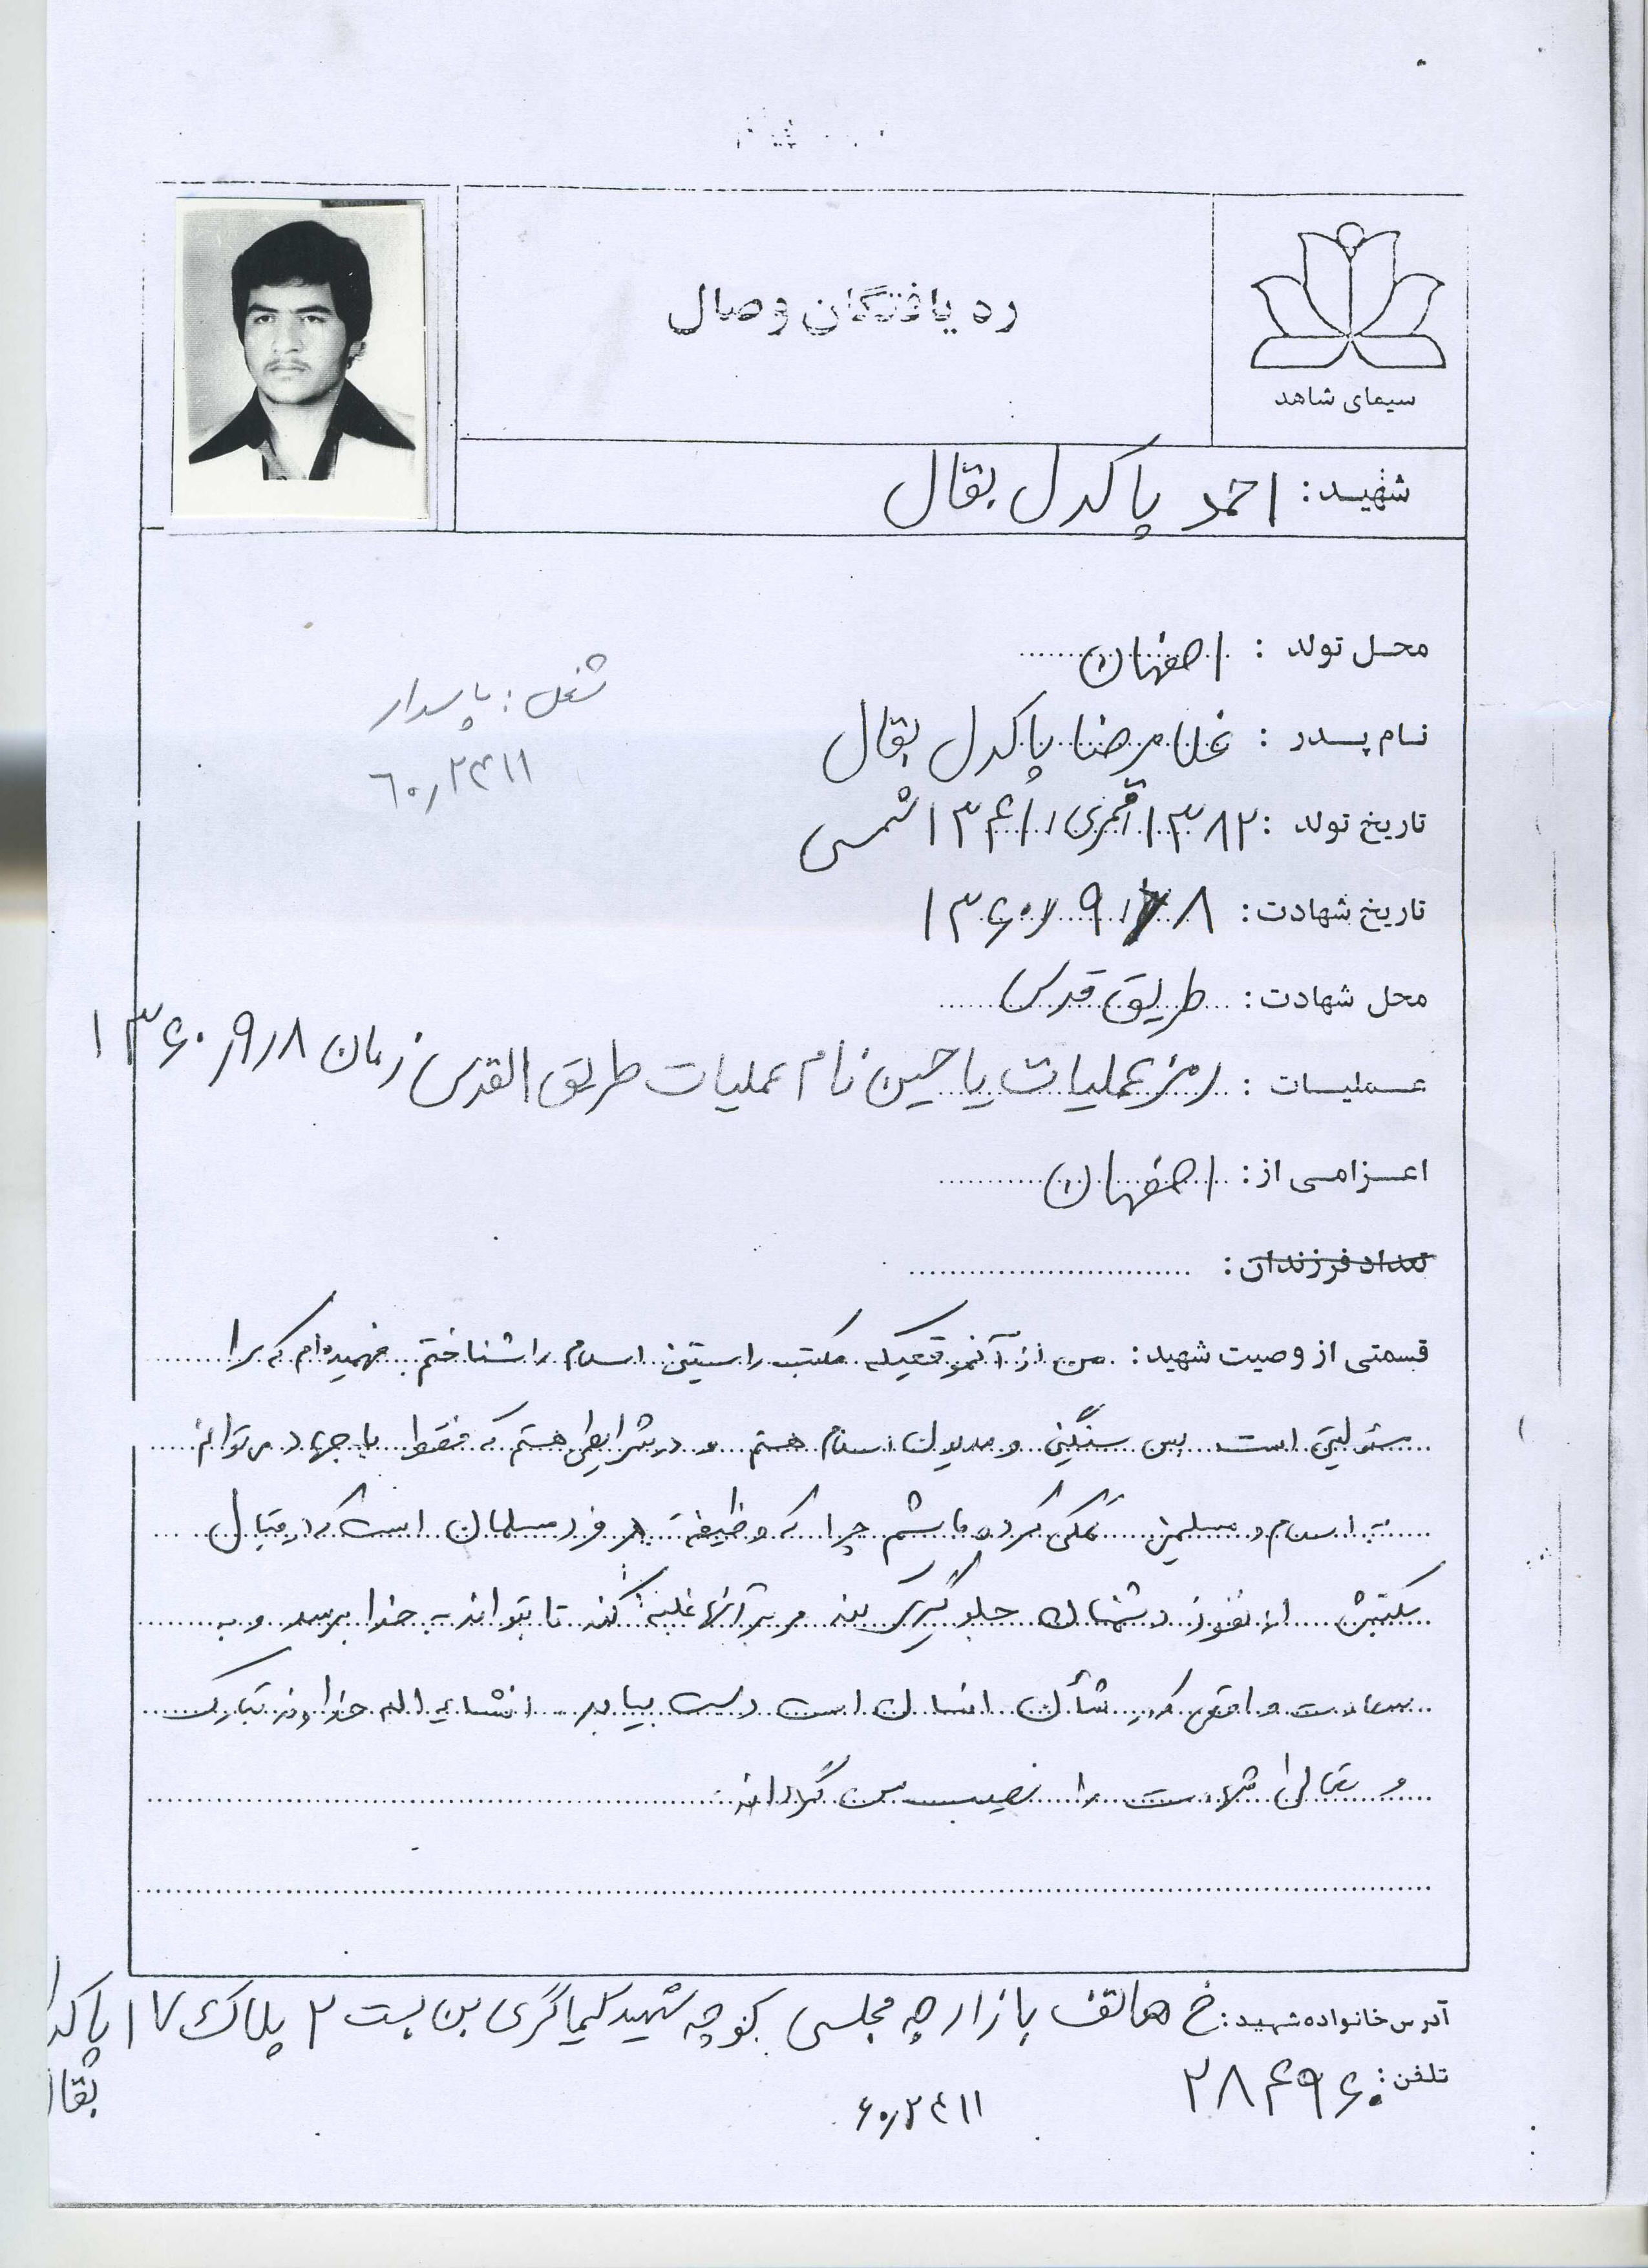 ره یافتگان وصال
سیمای شاهد
شهید: احمد پاکدل بقال
محل تولد : اصفهان
شغل : پاسدار
نام پدر : غلامرضا پاکدل بقال
۶۰٫۲۴۱۱
تاریخ تولد : ۱۳۸۲ قمری ۱۳۴۱ شمسی
تاریخ شهادت : ۱۳۶۰/۹/۸
محل شهادت : طریق قدس
عملیات : رمز عملیات یا حسین نام عملیات طریق القدس زمان ۱۳۶۰٫۹٫۸
اعزامی از : اصفهان
تعداد فرزندان :
قسمتی از وصیت شهید : من از آنموقعیکه مکتب راستین اسلام را شناختم فهمیده‌ام که مرا
مسئولیتی است بس سنگین و مدیون اسلام هستم و در شرایطی هستم که فقط با جهاد می‌توانم
به اسلام و مسلمین کمکی کرده باشم چرا که وظیفه هر فرد مسلمان است که در قبال
مکتبش از نفوذ دشمنان جلوگیری کند و بر آنها غلبه کند تا بتواند به خدا برسد و به
سعادت واقعی که در شأن انسان است دست بیابد انشاء الله خداوند تبارک
و تعالی شهادت را نصیب من گرداند
آدرس خانواده شهید : خ هاتف بازارچه مجلسی کوچه شهید کیمیاگری بن بست ۲ پلاک ۱۷ پاکدل
بقال
تلفن : ۲۸۴۹۶۰
۶۰٫۲۴۱۱